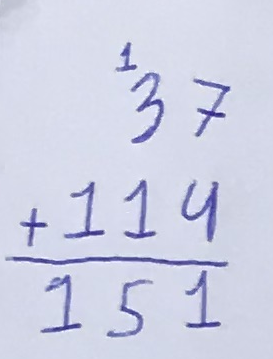 1
37
+114
151